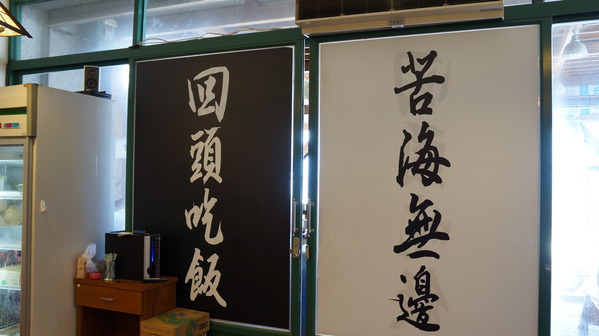 苦海無邊
回頭吃飯